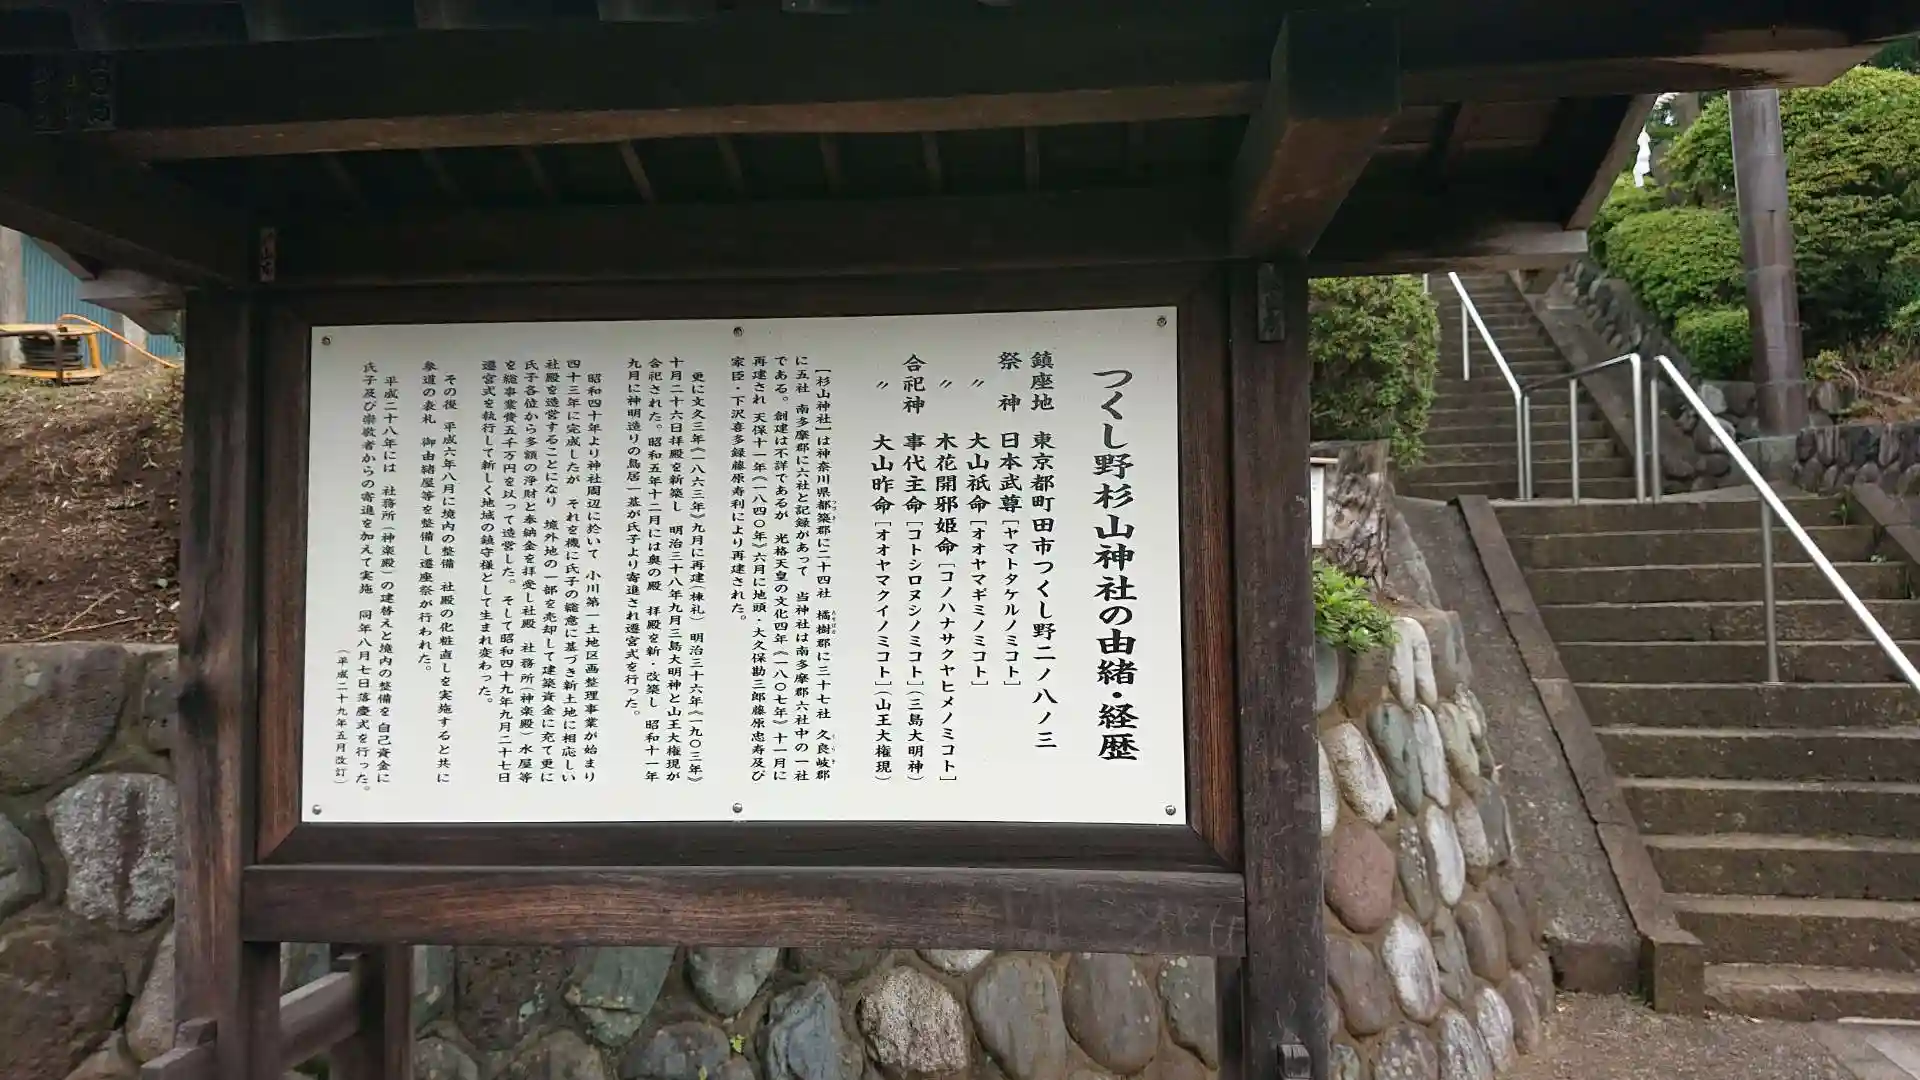 つくし野杉山神社の由緒・経歴
鎮座地 東京都町田市つくし野二ノ八ノ三
祭 神 日本武尊[ヤマトタケルノミコト]
〃 大山祇命[オオヤマギミノミコト]
〃 木花開邪姫命[コノハナサクヤヒメノミコト]
合祀神 事代主命[コトシロヌシノミコト](三島大明神)
〃 大山昨命[オオヤマクイノミコト](山王大権現)
[杉山神社]は神奈川県都築郡に二十四社 橘樹郡に三十七社 久良岐郡
に五社 南多摩郡に六社と記録があって 当神社は南多摩郡六社中の一社
である。創建は不詳であるが 光格天皇の文化四年《一八〇七年》十一月に
再建され 天保十一年《一八四〇年》六月に地頭・大久保勘三郎藤原忠寿及び
家臣・下沢喜多録藤原寿利により再建された。
更に文久三年《一八六三年》九月に再建(棟札) 明治三十六年《一九〇三年》
十月二十六日拝殿を新築し 明治三十八年九月三島大明神と山王大権現が
合祀された。昭和五年十二月には奥の殿 拝殿を新・改築し 昭和十一年
九月に神明造りの鳥居一基が氏子より寄進され遷宮式を行った。
昭和四十年より神社周辺に於いて 小川第一土地区画整理事業が始まり
四十三年に完成したが それを機に氏子の総意に基づき新土地に相応しい
社殿を造営することになり 境外地の一部を売却して建築資金に充て更に
氏子各位から多額の浄財と奉納金を拝受し社殿 社務所(神楽殿)水屋等
を総事業費五千万円を以って造営した。そして昭和四十九年九月二十七日
遷宮式を執行して新しく地域の鎮守様として生まれ変わった。
その後 平成六年八月に境内の整備 社殿の化粧直しを実施すると共に
参道の表札 御由緒屋等を整備し遷座祭が行われた。
平成二十八年には 社務所(神楽殿)の建替えと境内の整備を自己資金に
氏子及び崇敬者からの寄進を加えて実施 同年八月七日落慶式を行った。
(平成二十九年五月改訂)